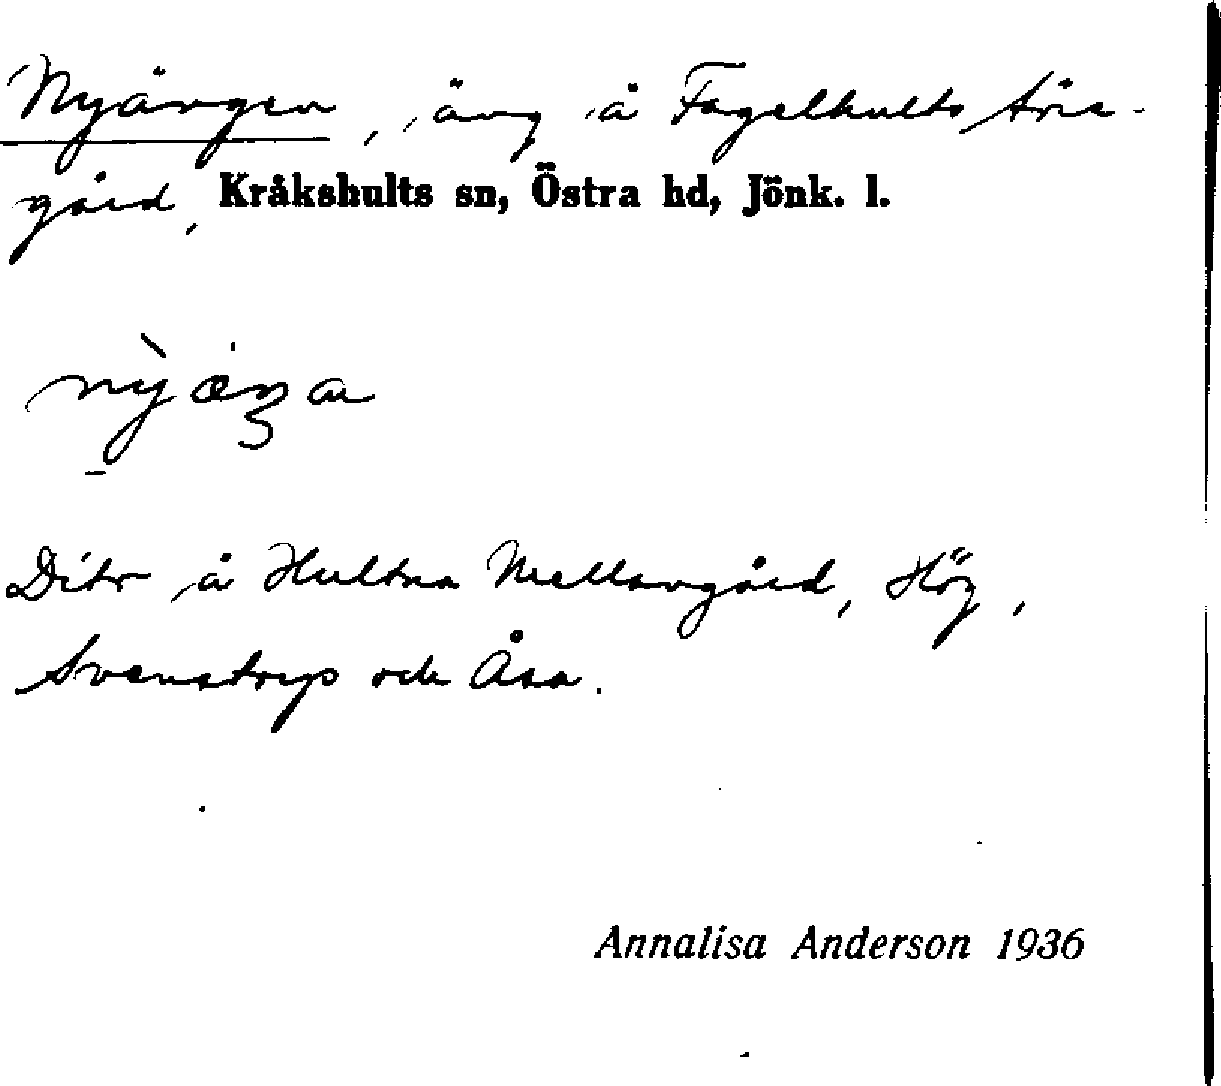 Nyängen, äng å Fagelhults Söre-
gård, Kråkshults sn, Östra hd, Jönk. l.
Ditr å Hultna Mellangård, Hög,
Svenstryp och Åsa.
Annalisa Anderson 1936